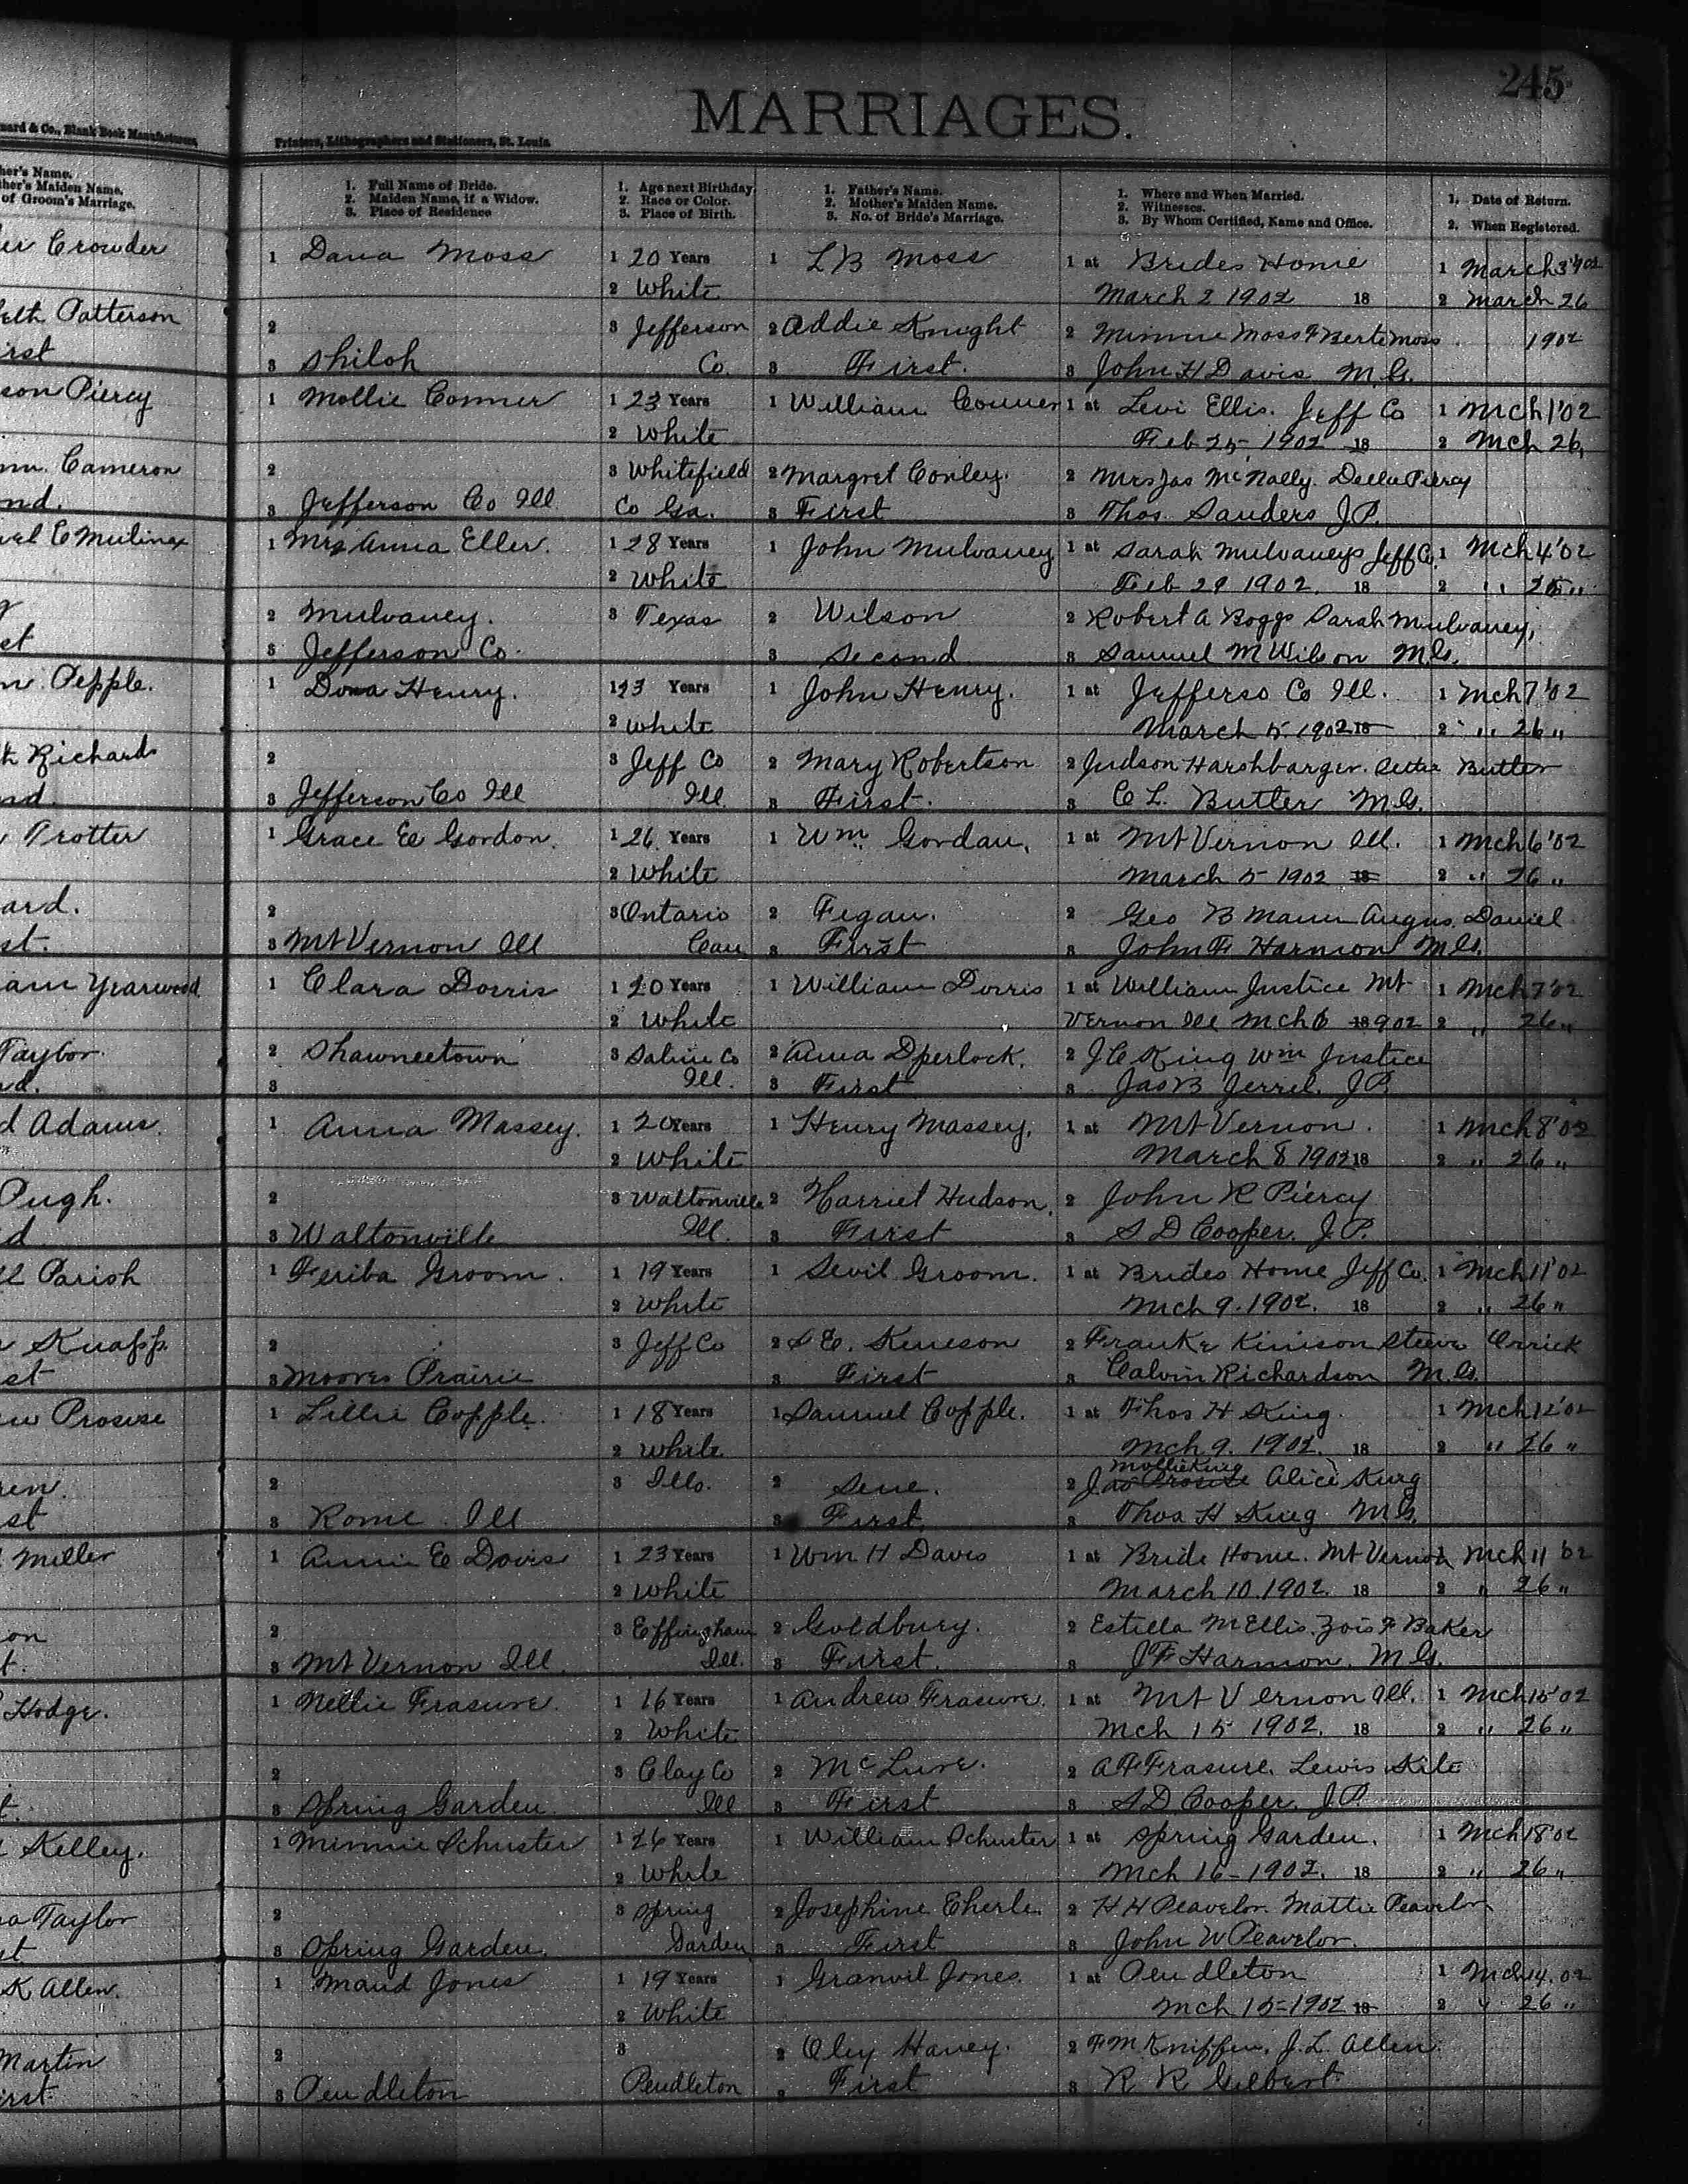 245
MARRIAGES.
Printers, Lithographers and Stationers, St. Louis
& Co., Blank Book Manufacturers,
1. Full Name of Bride.
2. Maiden Name, if a Widow.
3. Place of Residence
1. Age next Birthday
2. Race or Color.
3. Place of Birth.
1. Father's Name.
2. Mother's Maiden Name.
3. No. of Bride's Marriage.
1. Where and When Married.
2. Witnesses.
3. By Whom Certified, Name and Office.
1. Date of Return.
2. When Registered.
Name.
Maiden Name.
of Groom's Marriage.
Crowder
1 Dana Moss 1 20 Years 1 L B Moss 1 at Brides Home 1 March 3 1902
2 White March 2 1902 18 2 March 26
Patterson
2 3 Jefferson 2 Addie Knight 2 Minnie Moss & Berte Moss 1902
3 Shiloh Co. 3 First. 3 John H Davis M.G.
Piercy
1 Mollie Conner 1 23 Years 1 William Conner 1 at Levi Ellis. Jeff Co 1 Mch 1 '02
2 White Feb 25, 1902 18 2 Mch 26,
Cameron
2 3 Whitefield 2 Margret Conley. 2 Mrs Jas McNally. Della Piercy
3 Jefferson Co Ill Co Ga. 3 First 3 Thos. Sanders J.P.
E Mulinax
1 Mrs Anna Eller. 1 28 Years 1 John Mulvaney 1 at Sarah Mulvaneys Jeff Co. 1 Mch 4 '02
2 White Feb 29 1902. 18 2 " 26 "
2 Mulvaney. 3 Texas 2 Wilson 2 Robert A Boggs Sarah Mulvaney,
3 Jefferson Co. 3 Second 3 Samuel M Wilson M.G.
Pepple.
1 Dona Henry. 1 23 Years 1 John Henry. 1 at Jefferso Co Ill. 1 Mch 7 '02
2 White March 5 1902 18 2 " 26 "
Richards
2 3 Jeff Co 2 Mary Robertson 2 Judson Harshbarger. Butler
3 Jefferson Co Ill Ill. 3 First. 3 C L. Butler M.G.
Trotter
1 Grace E Gordon. 1 26 Years 1 Wm. Gordan, 1 at Mt Vernon Ill. 1 Mch 6 '02
2 White March 5 1902 18 2 " 26 "
2 3 Ontario 2 Fegan. 2 Geo B Mann Angus Daniel
3 Mt Vernon Ill Can 3 First 3 John F Harmon M.G.
Yearwood
1 Clara Dorris 1 20 Years 1 William Dorris 1 at William Justice Mt 1 Mch 7 '02
2 White Vernon Ill Mch 6 18 902 2 " 26 "
Taylor.
2 Shawneetown 3 Saline Co 2 Anna Dperlock. 2 J C King Wm Justice
3 Ill. 3 First 3 Jas B Jerrel. J P.
Adams.
1 Anna Massey. 1 20 Years 1 Henry Massey. 1 at Mt Vernon. 1 Mch 8 '02
2 White March 8 1902 18 2 " 26 "
Pugh.
2 3 Waltonville 2 Harriet Hudson. 2 John R Piercy
3 Waltonville Ill. 3 First 3 S D Cooper. J.P.
Parish
1 Feriba Groom. 1 19 Years 1 Sevil Groom. 1 at Brides Home Jeff Co. 1 Mch 11 '02
2 White Mch 9. 1902. 18 2 " 26 "
Knapp.
2 3 Jeff Co 2 S E. Keneson 2 Franke Kinison Steeve
3 Moores Prairie 3 First 3 Calvin Richardson M.G.
Prowse
1 Lillie Copple. 1 18 Years 1 Samuel Copple. 1 at Thos H King. 1 Mch 12 '02
2 White Mch 9. 1902. 18 2 " 26 "
Mollie King
2 3 Ills. 2 Sene. 2 Alice King
3 Rome Ill 3 First. 3 Thos H King M.G.
Miller
1 Annie E Davis 1 23 Years 1 Wm H Davis 1 at Bride Home. Mt Vernon 1 Mch 11 '02
2 White March 10. 1902. 18 2 " 26 "
2 3 Effingham 2 Goldbury. 2 Estella M Ellis. Zois F Baker
3 Mt Vernon Ill. Ill. 3 First. 3 J F Harmon. M G.
Hodge.
1 Nellie Frasure 1 16 Years 1 Andrew Frasure. 1 at Mt Vernon Ill. 1 Mch 15 '02
2 White Mch 15 1902. 18 2 " 26 "
2 3 Clay Co 2 McLure. 2 A F Frasure. Lewis Kite
3 Spring Garden Ill 3 First 3 S D Cooper. J.P.
Kelley.
1 Minnie Schuster 1 26 Years 1 William Schuster 1 at Spring Garden. 1 Mch 18 02
2 White Mch 16 - 1902. 18 2 " 26 "
Taylor
2 3 Spring 2 Josephine Eherle 2 H H Peavelor. Mattie Peavelor
3 Spring Garden. Garden 3 First 3 John W Peavelor.
K Allen.
1 Maud Jones 1 19 Years 1 Granvil Jones. 1 at Pendleton 1 Mch 14. 02
2 White Mch 15 - 1902 18 2 " 26 "
Martin
2 3 2 Oley Haney. 2 F M Kniffen. J. L. Allen
3 Pendleton Pendleton 3 First 3 R R Gilbert